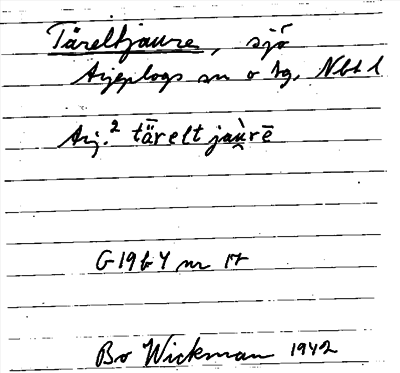 Täreltjaure, sjö
Arjeplogs sn o tg. Nbt l
Arj.² tärelt jau̯rē
G 19 b Y nr 17
Bo Wickman 1942